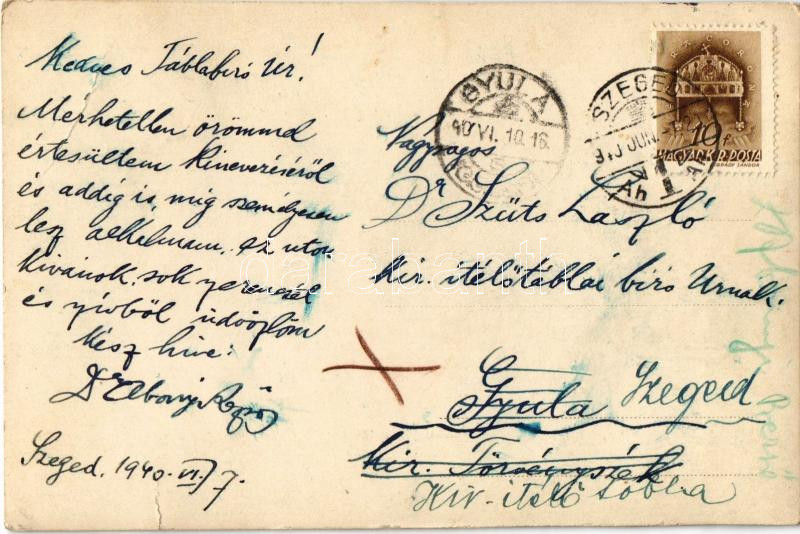 Kedves Táblabiró Úr!
Mérhetetlen örömmel
értesültem kinevezéséről
és addig is, míg személyesen
lesz alkalmam, ez uton
kivánok sok szerencsét
és szivből üdvözlöm
kész híve:
Dr
Szeged. 1940. VI/7.
GYULA
40 VI. 10. 16
SZEGED
940 JUN.
MAGYAR KIR. POSTA
10 f
Nagyságos
Dr Szüts László
kir. itélőtáblai biró Urnak.
Gyula Szeged
Kir. Törvényszék
Kir. itélő tábla
darabanth